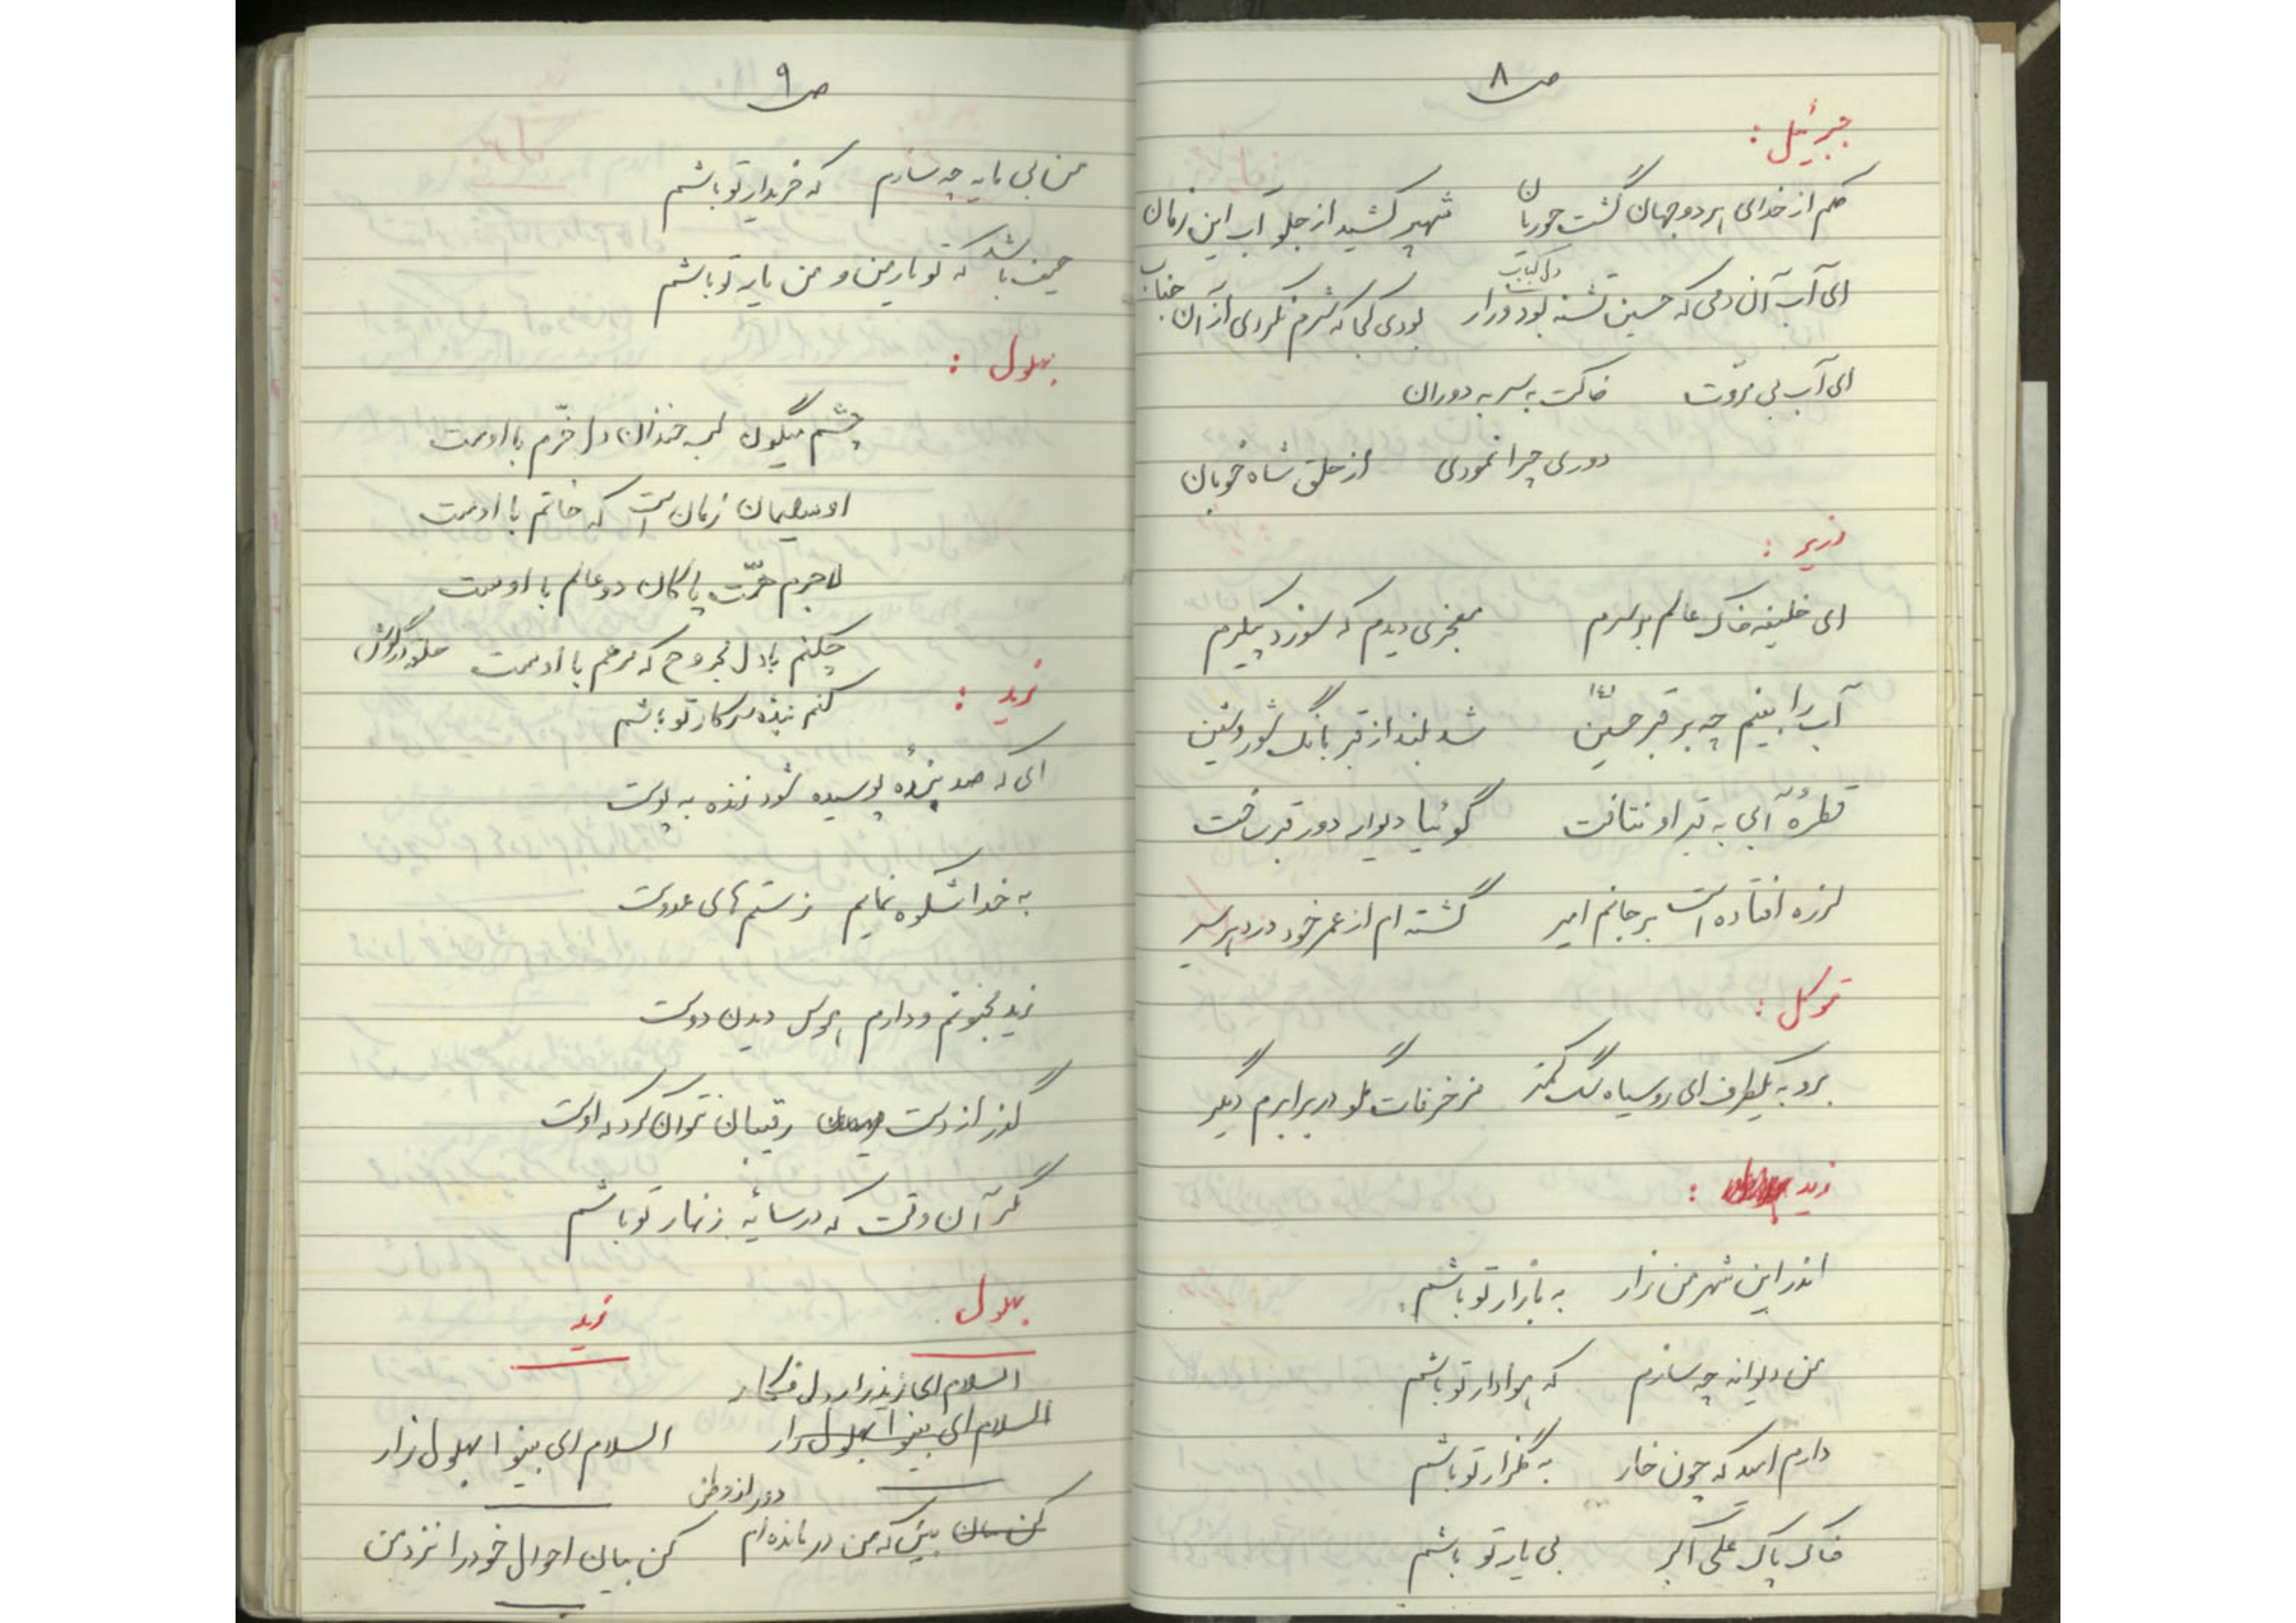 ص۸
جبرئیل :
حکم از خدای هر دو جهان گشت حوریان شهپر کشید از جلو آب این زمان
ای آب آن دمی که حسین تشنه بود و زار دل کباب بودی کجا که شرم نکردی از آن جناب
ای آب بی مروّت خاکت به سر به دوران
دوری چرا نمودی از حلق شاه خوبان
وزیر :
ای خلیفه خاک عالم بر سرم معجزی دیدم که سوزد پیکرم
آب را بستم چه بر قبر حسین شد بلند از قبر بانگ شور و شین
قطرهٔ آبی به قبر او نتافت گوئیا دیوار دور قبر ساخت
لرزه افتاده است بر جانم امیر گشته ام از عمر خود در دهر سیر
متوکل :
برو به یکطرف ای روسیاه سگ کمتر مزخرفات مگو در برابرم دیگر
زید :
اندر این شهر من زار به بازار تو باشم
من دیوانه چه سازم که هوادار تو باشم
دارم امید که چون خار به گلزار تو باشم
خاک پاک علی اکبر بی یار تو باشم
ص۹
من بی مایه چه سازم که خریدار تو باشم
حیف باشد که تو یار من و من یار تو باشم
بهلول :
چشم میگون لب خندان دل خرّم با اوست
او سلیمان زمان است که خاتم با اوست
لاجرم همّت پاکان دو عالم با اوست
چکنم با دل مجروح که مرهم با اوست حلقه در گوش
زید :
کنم بنده سرکار تو باشم
ای که صد بنده پوسیده شود زنده به بوت
به خدا شکوه نمایم ز ستم های عدوت
زید مجنونم و دارم هوس دیدن دوست
گذر از دست رقیبان نتوان کرد که اوست
مگر آن وقت که در سایهٔ زنهار تو باشم
بهلول زید
السلام ای زید زار دل فکار
السلام ای بینوا بهلول زار السلام ای بینوا بهلول زار
دور از وطن
کن بیان بین که من در مانده ام کن بیان احوال خود را نزد من